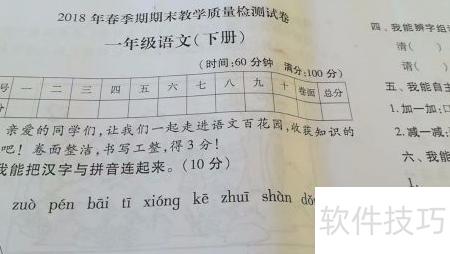 2018年春季期期末教学质量检测试卷
一年级语文(下册)
(时间:60分钟 满分:100分)
号 一 二 三 四 五 六 七 八 九 十 卷面 总分
分
亲爱的同学们,让我们一起走进语文百花园,收获知识的
吧!卷面整洁,书写工整,得3分!
我能把汉字与拼音连起来。(10分)
zuò pén bāi tī xióng kē zhuī shàn
四、我能辨字组
请(
请(
五、我能自主
1.加一加:口
2.减一减:
六、我能
1.
软件技巧